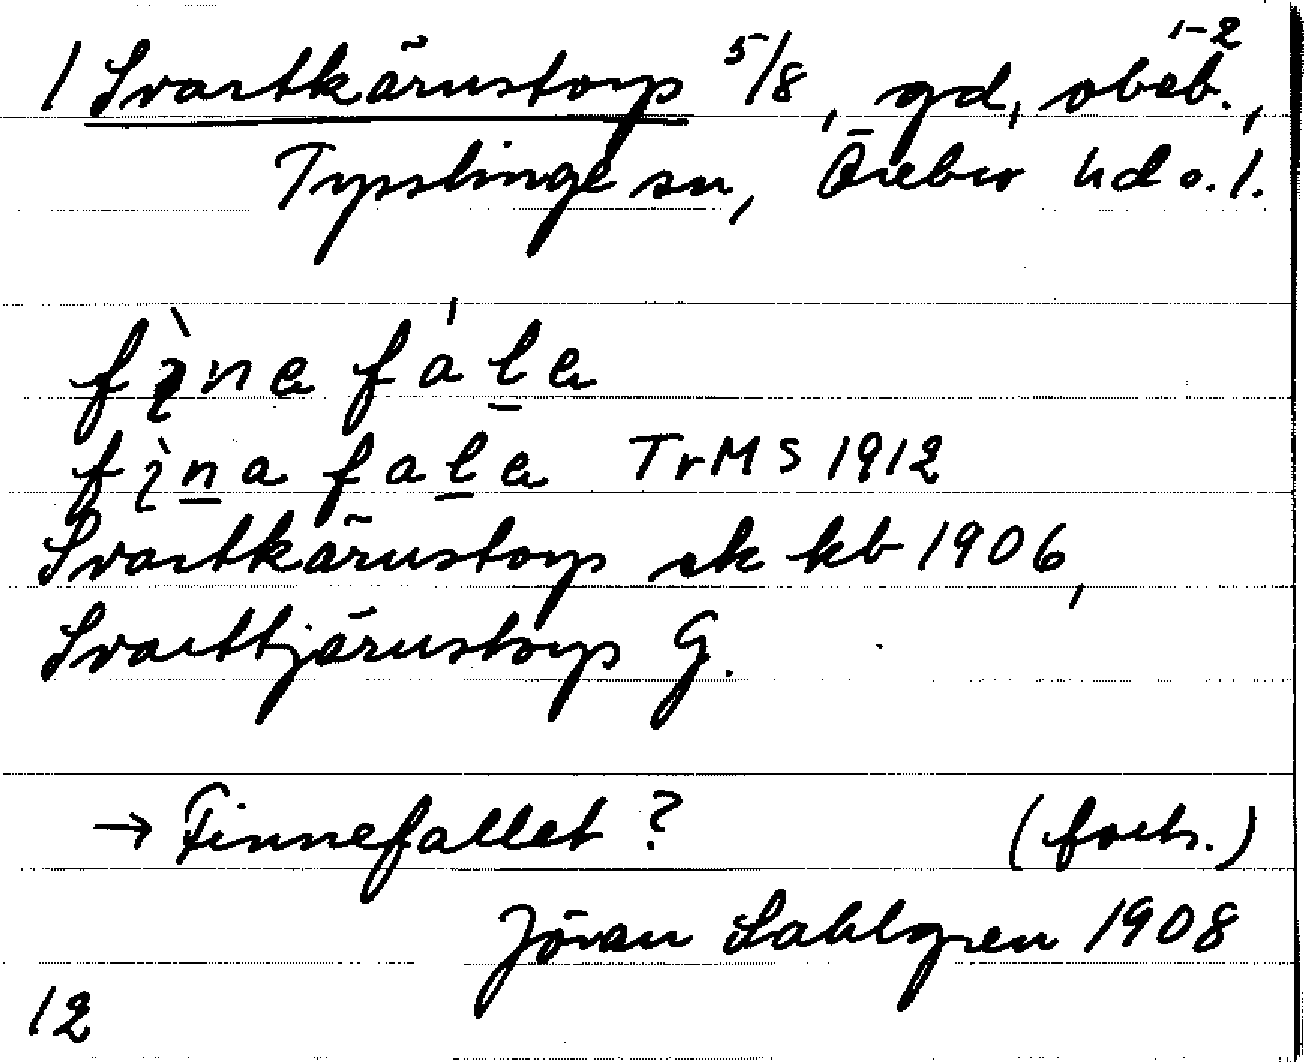 1 Svartkärnstorp 5/8, gd, obeb. 1-2,
Tysslinge sn, Örebro hd o. l.
fìna fála
fìna fala TrMS 1912
Svartkärnstorp ek kb 1906,
Svarttjärnstorp G.
→ Finnefallet? (forts.)
Jöran Sahlgren 1908
12